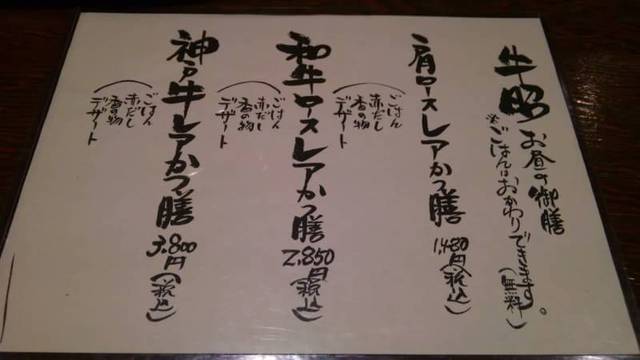 牛昭 お昼の御膳
※ごはんはおかわりできます。(無料)
肩ロースレアかつ膳 1,480円(税込)
(ごはん
赤だし
香の物
デザート
和牛ロースレアかつ膳 2,850円(税込)
(ごはん
赤だし
香の物
デザート
神戸牛レアかつ膳 3,800円(税込)
(ごはん
赤だし
香の物
デザート